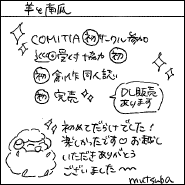 羊と南瓜
COMITIA 初 サークル参加
初 創作同人誌
初 完売
DL販売
あります
初めてだらけでした!
楽しかったです♡ お越し
いただきありがとう
ございました〜
mutsuba